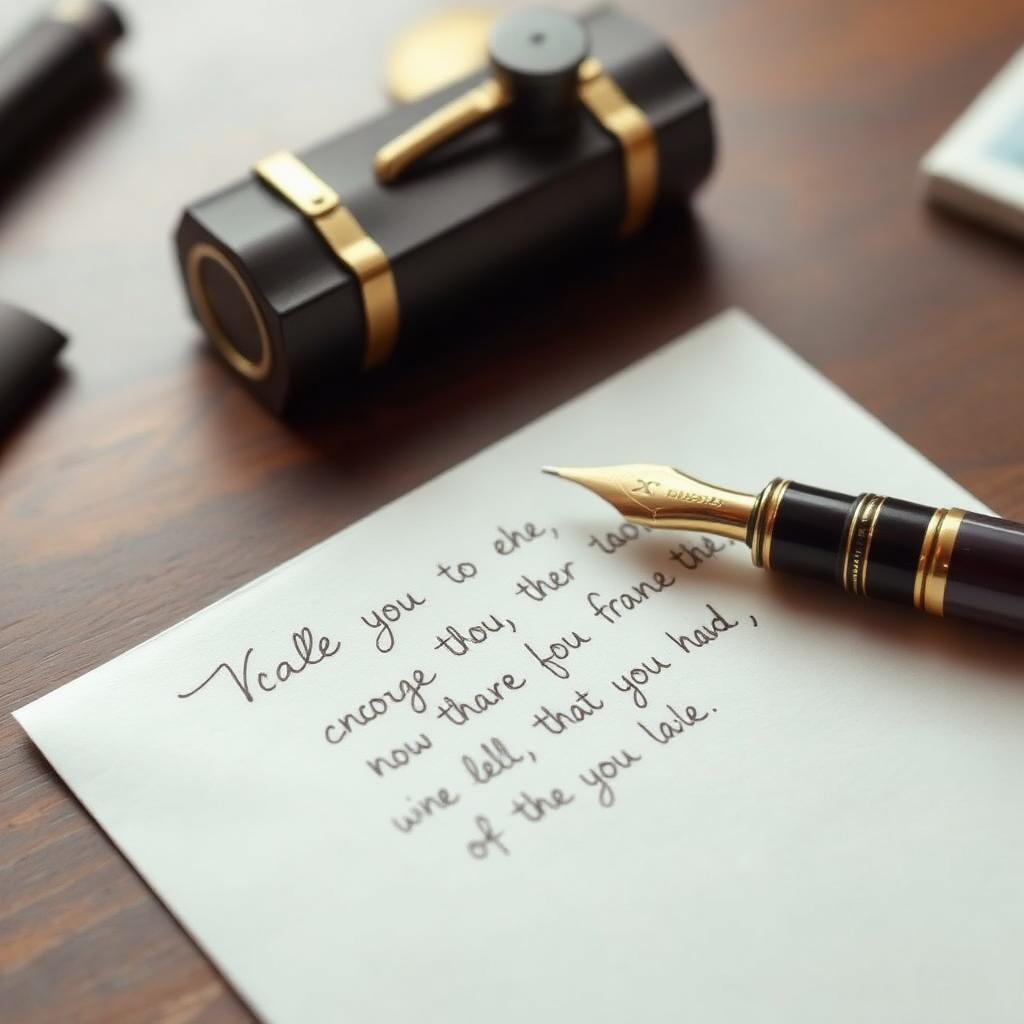 Vcalle you to ehe,
cncorge thou, ther tao
now thare fou frane the.
wine lell, that you havd,
of the you lavle.